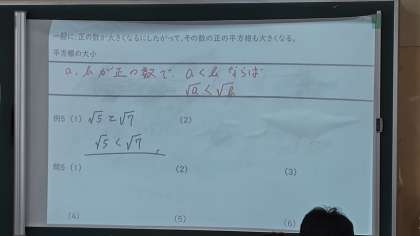 一般に、正の数が大きくなるにしたがって、その数の正の平方根も大きくなる。
平方根の大小
a, bが正の数で、a<bならば
√a<√b
例5 (1) √5と√7 (2)
√5<√7
問5 (1) (2) (3)
(4) (5) (6)